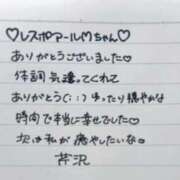 ♡レスポアールMちゃん♡
ありがとうございました♡
体調気遣ってくれて
ありがとう(;;)ゆったり穏やかな
時間で本当に幸せでした♡
次は私が癒やしたいな♡
芹沢